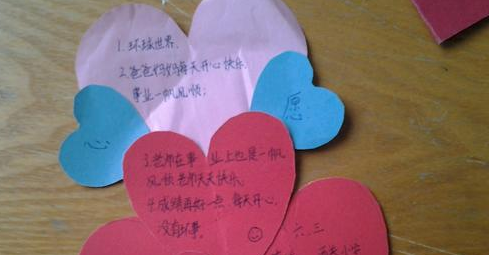 1.环球世界.
2.爸爸妈妈每天开心快乐.
事业一帆风顺;
心
愿
3.老师在事业上也是一帆
风顺.老师天天快乐.
4.成绩再好一点.每天开心.
没有坏事.
六.三